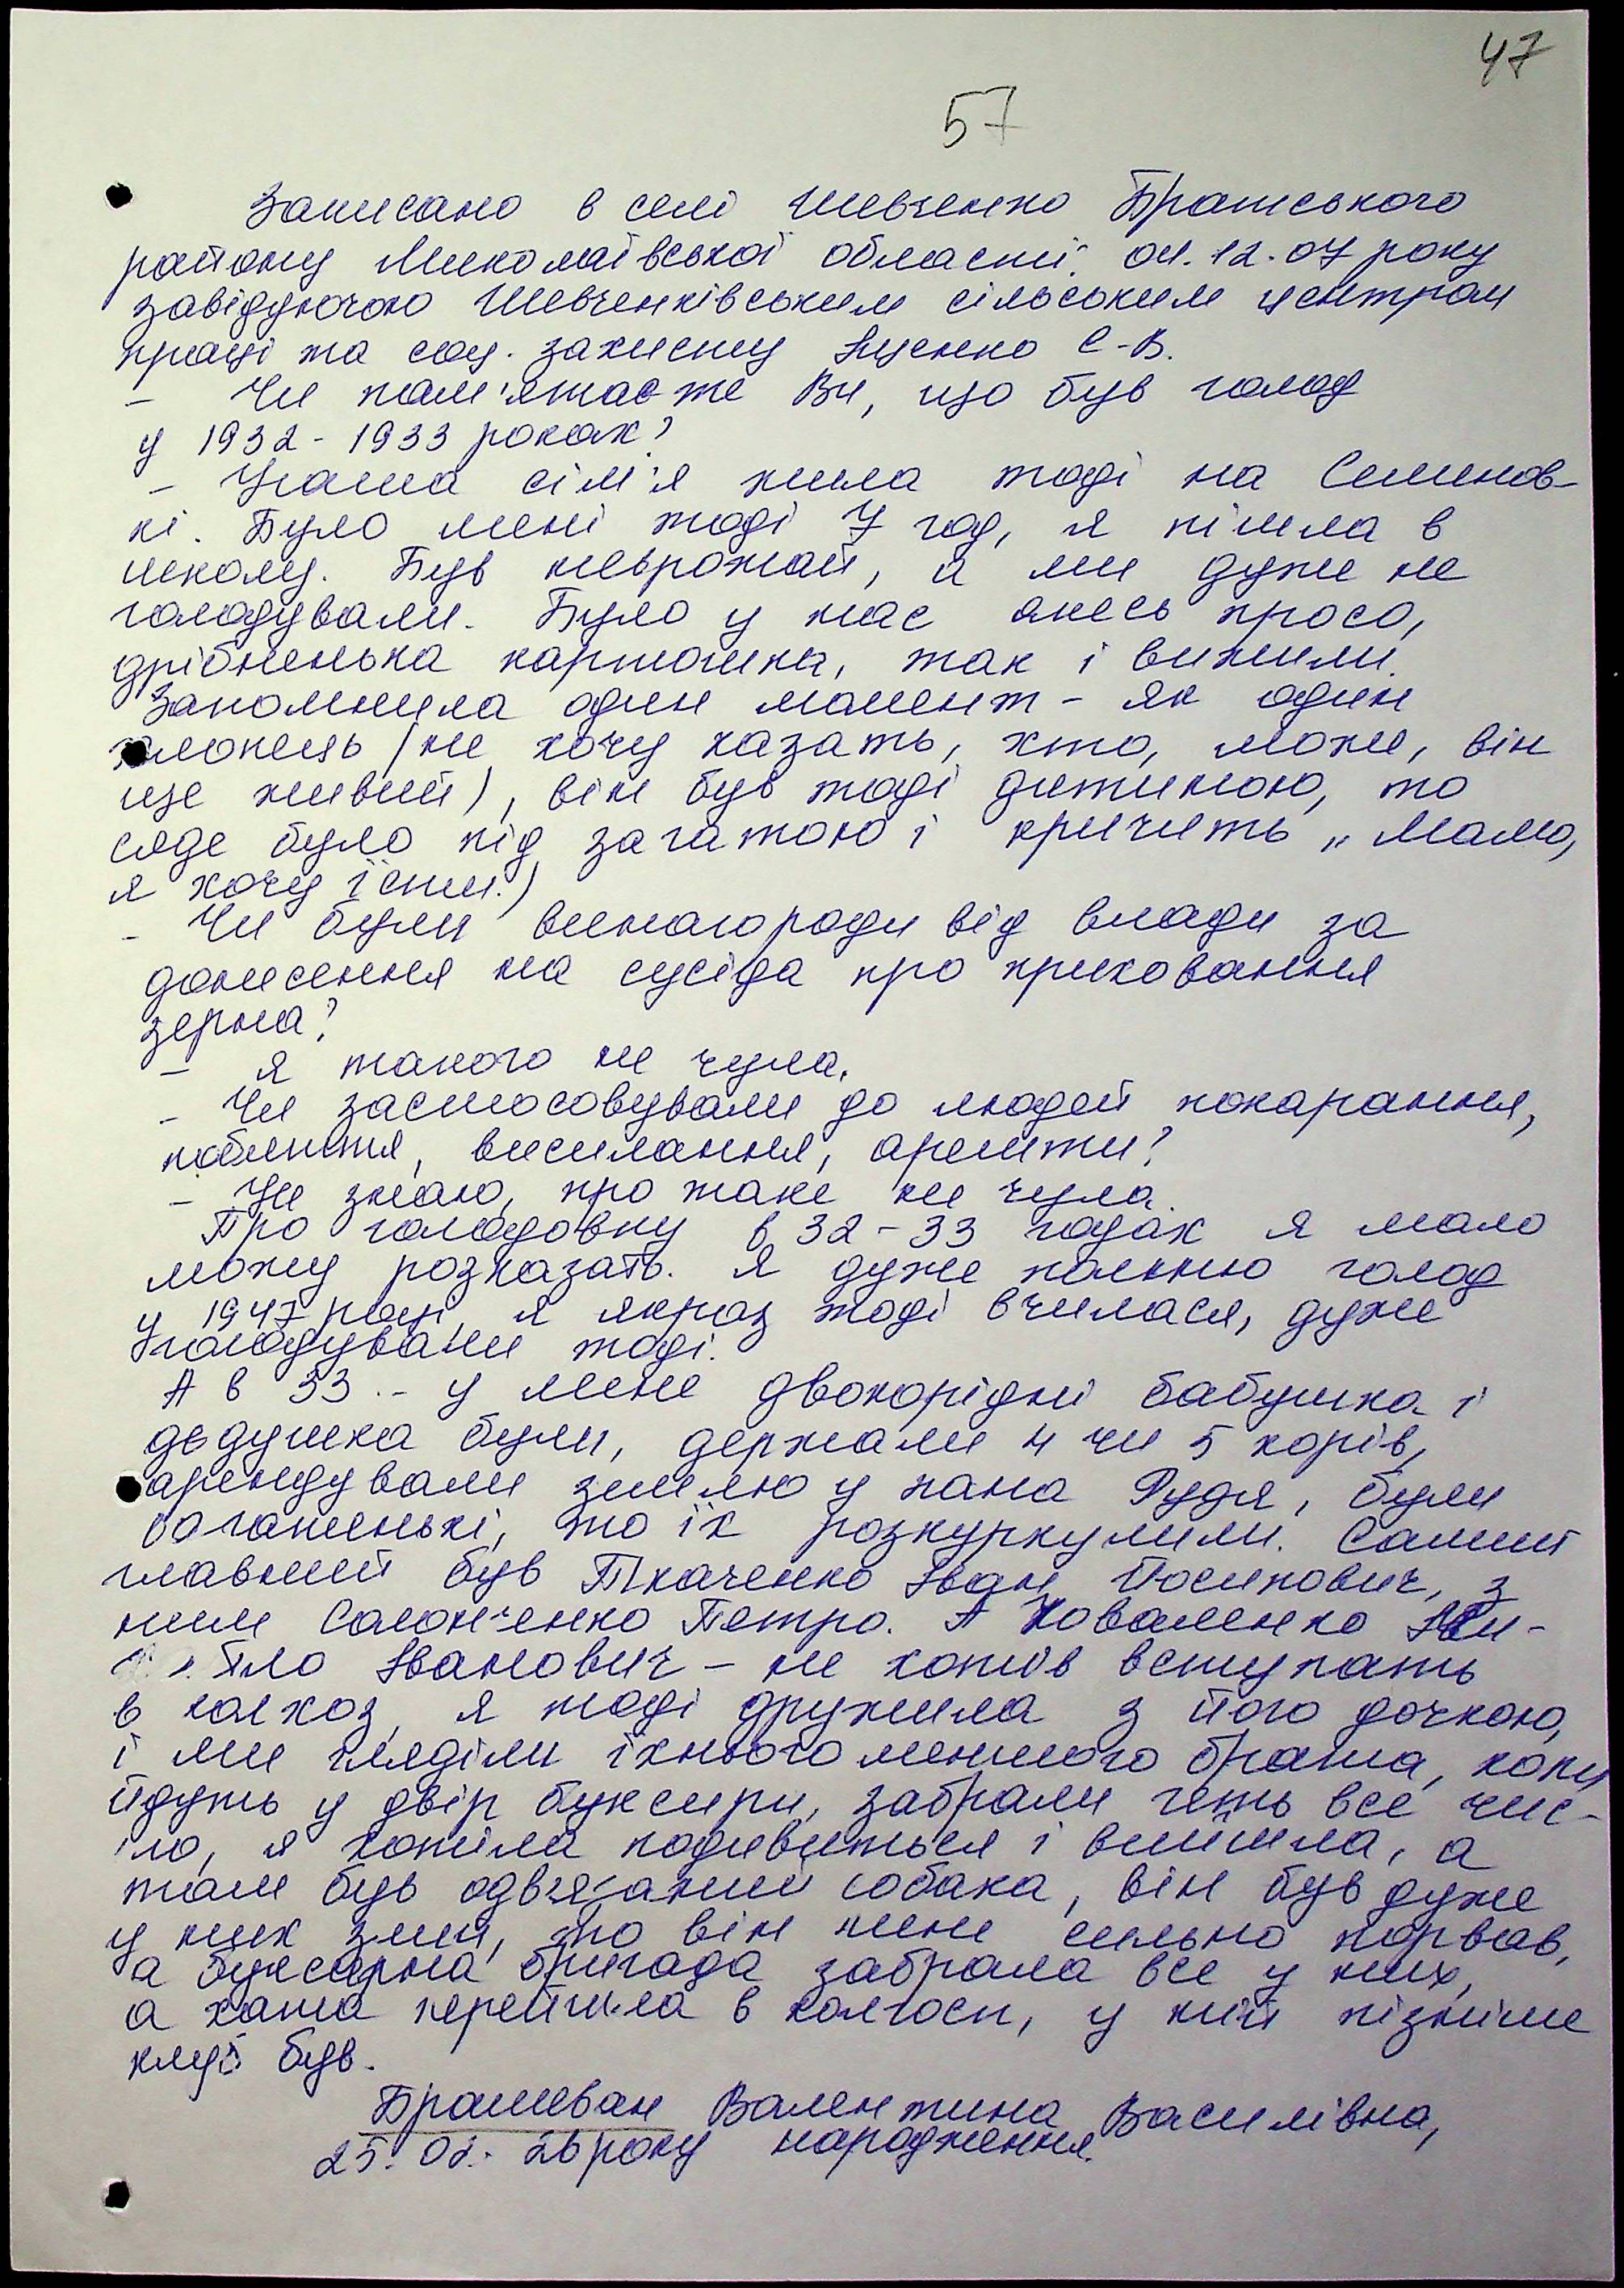 47
57
Записано в селі Шевченко Братського
району Миколаївської області 01.12.07 року
завідуючою Шевченківським сільським центром
праці та соц. захисту Яценко С.В.
- Чи пам'ятаєте Ви, що був голод
у 1932-1933 роках?
- Наша сім'я жила тоді на Семенов-
кі. Було мені тоді 7 год, я пішла в
школу. Був неврожай, а ми дуже не
голодували. Було у нас якесь просо,
дрібненька картошка, так і вижили.
Запомнила один момент - як один
хлопець (не хочу казать, хто, може, він
ще живий), він був тоді дитиною, то
сяде було під загатою і кричить „Мамо,
я хочу їсти.)
- Чи були винагороди від влади за
донесення на сусіда про приховання
зерна?
- я такого не чула.
- Чи застосовували до людей покарання,
побиття, висилання, арешти?
- Не знаю, про таке не чула.
Про голодовку в 32-33 годах я мало
можу розказать. Я дуже помню голод
у 1947 році, я якраз тоді вчилася, дуже
голодували тоді.
А в 33 - у мене двоюрідні бабушка і
дєдушка були, держали 4 чи 5 корів,
арендували землю у пана Рудя, були
багатенькі, то їх розкуркулили. Самий
главний був Ткаченко Іван Йосипович, з
ним Салонченко Петро. А Коваленко
Іванович - не хотів вступать
в колхоз, я тоді дружила з його дочкою,
і ми гляділи їхнього меншого брата, коли
йдуть у двір буксири, забрали геть все чис-
то, я хотіла подивиться і вийшла, а
там був одв'язаний собака, він був дуже
у них злий, то він мене сильно порвав,
а буксирна бригада забрала все у них,
а хата перейшла в колгосп, у ній пізніше
клуб був.
Брашеван Валентина Василівна,
25.02.26 року народження.